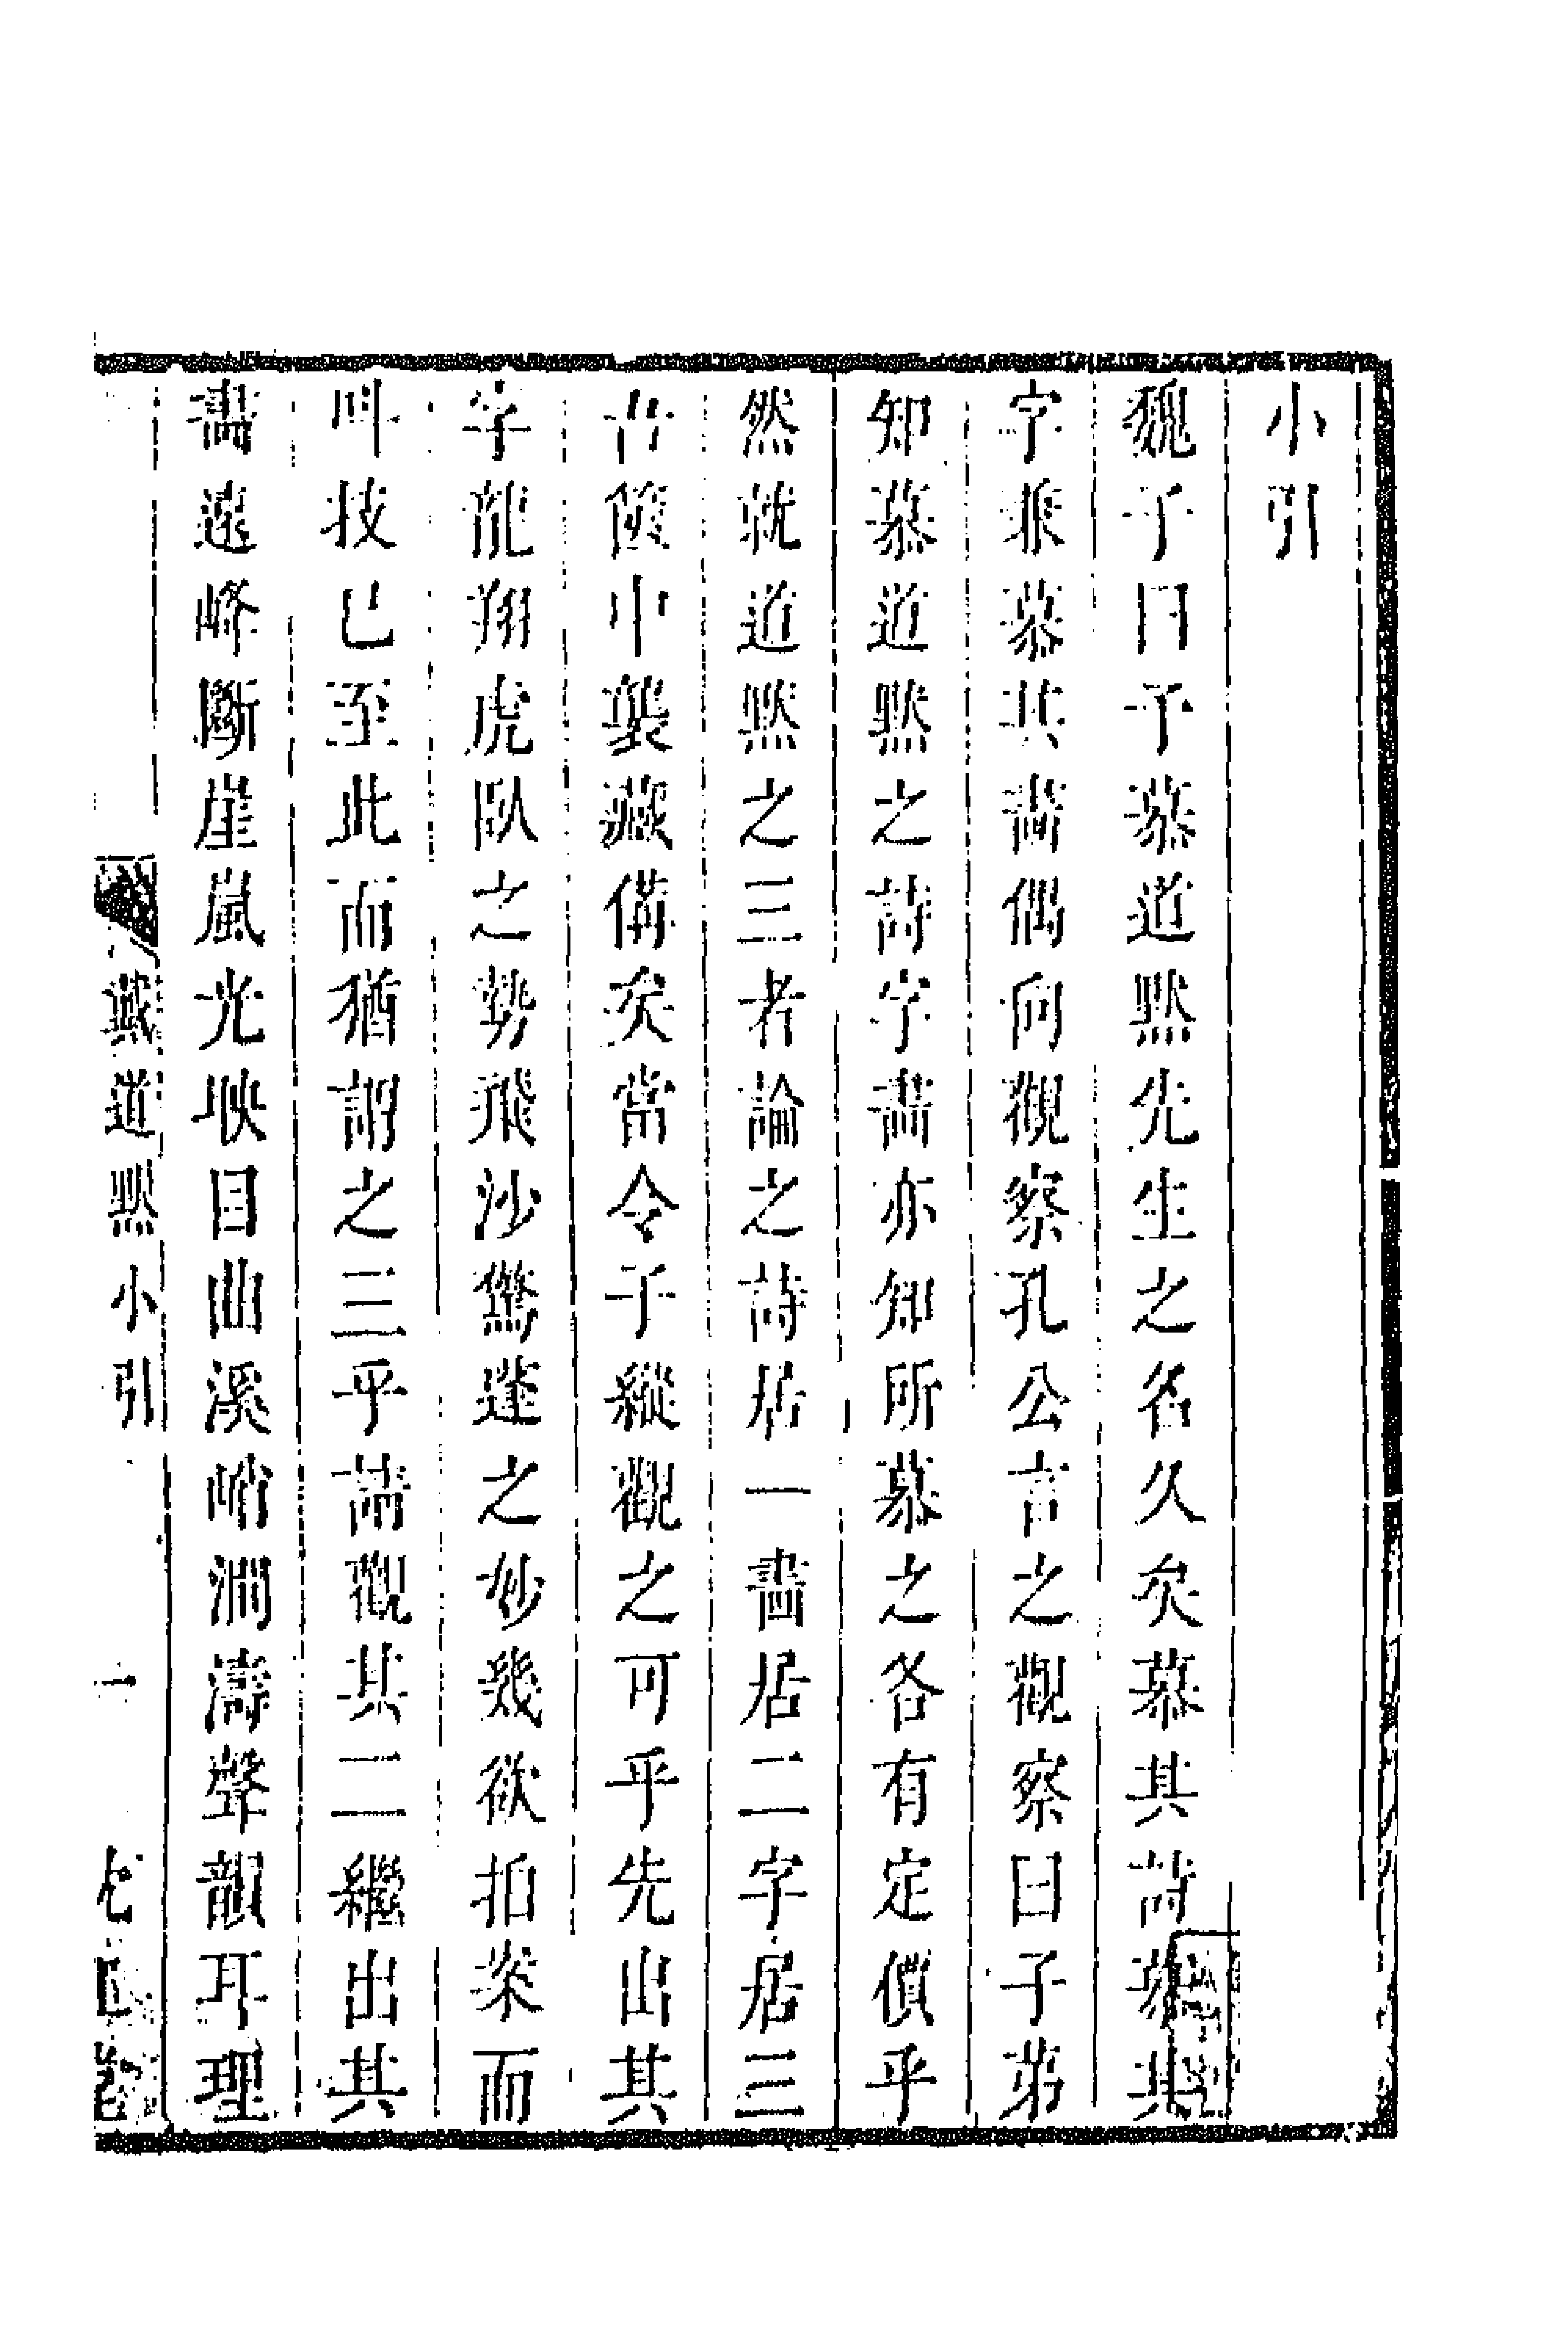 小引
魏子曰予慕道默先生之名久矣慕其詩慕其
字兼慕其畵偶向觀察孔公言之觀察曰子第
知慕道默之詩字畵亦知所慕之各有定價乎
然就道默之三者論之詩居一畵居二字居三
古篋中襲藏備矣當令子縱觀之可乎先出其
字龍翔虎臥之勢飛沙驚蓬之妙幾欲拍案而
叫技已至此而猶謂之三乎請觀其二繼出其
畵遠峰斷崖嵐光映目曲溪峭澗濤聲韻耳理
戴道默小引 一